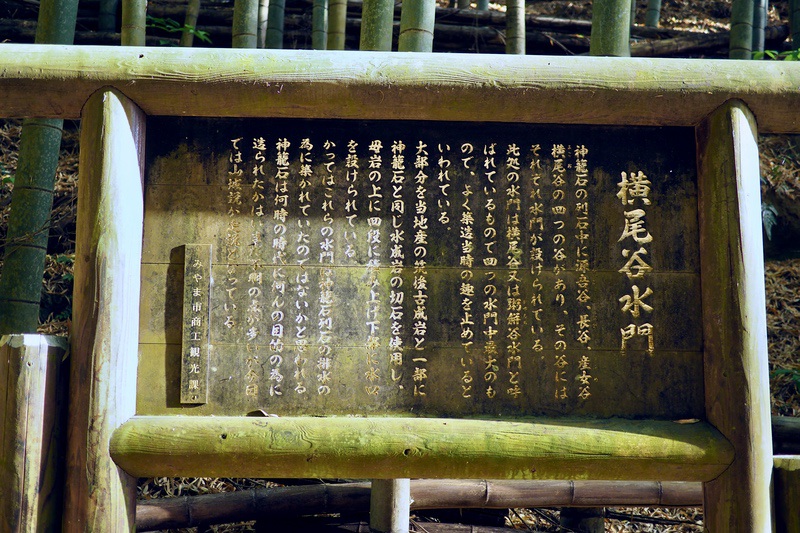 横尾谷水門
神籠石の列石中に源吾谷、長谷、産女谷
横尾谷の四つの谷があり、その谷には
それぞれ水門が設けられている
此処の水門は横尾谷又は粥餅谷水門と呼
ばれているもので四つの水門中最大のも
ので、よく築造当時の趣を止めていると
いわれている
大部分を当地産の筑後古成岩と一部に
神籠石と同じ水成岩の切石を使用し、
母岩の上に四段に積み上げ下部に水
を設けられている
かってはこれらの水門は神籠石列石の排水の
為に築かれていたのではないかと思われる
神籠石は何時の時代に何んの目的の為に
造られたかは
では山城説が なっている
みやま市商工観光課